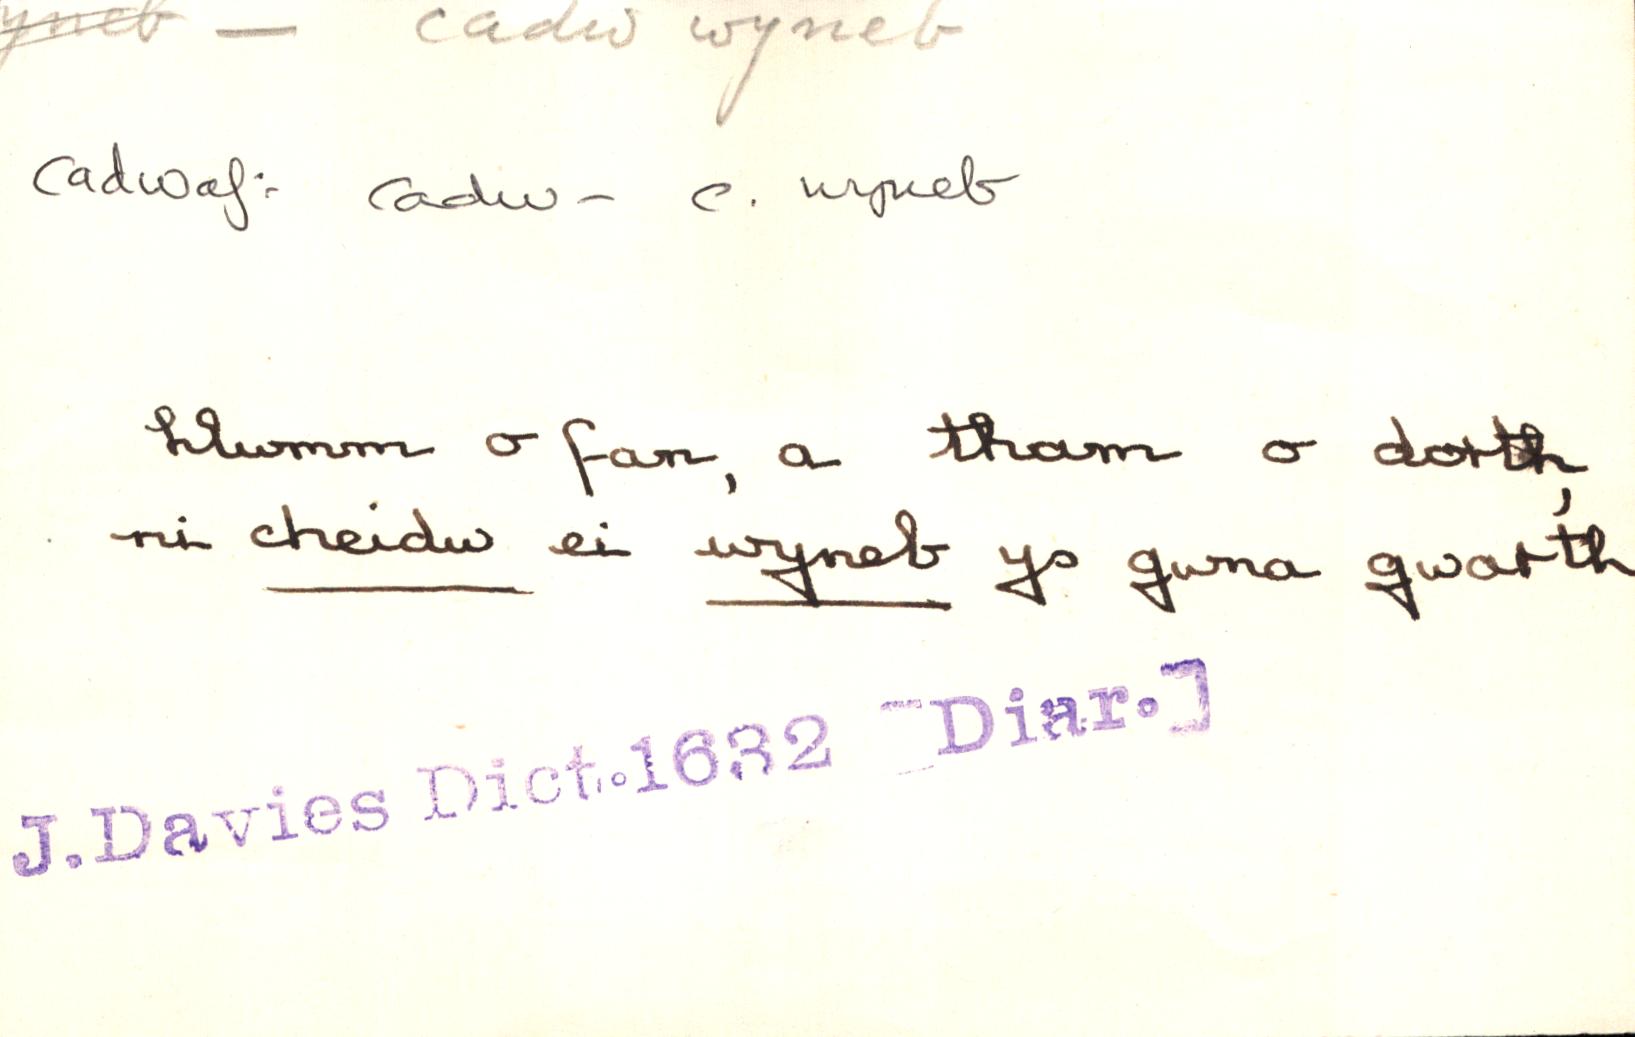 wyneb — cadw wyneb
cadwaf: cadw – c. wyneb
o fan, a tham o dorth,
ni cheidw ei wyneb ys gwna gwarth
J.Davies Dict.1632 [Diar.]